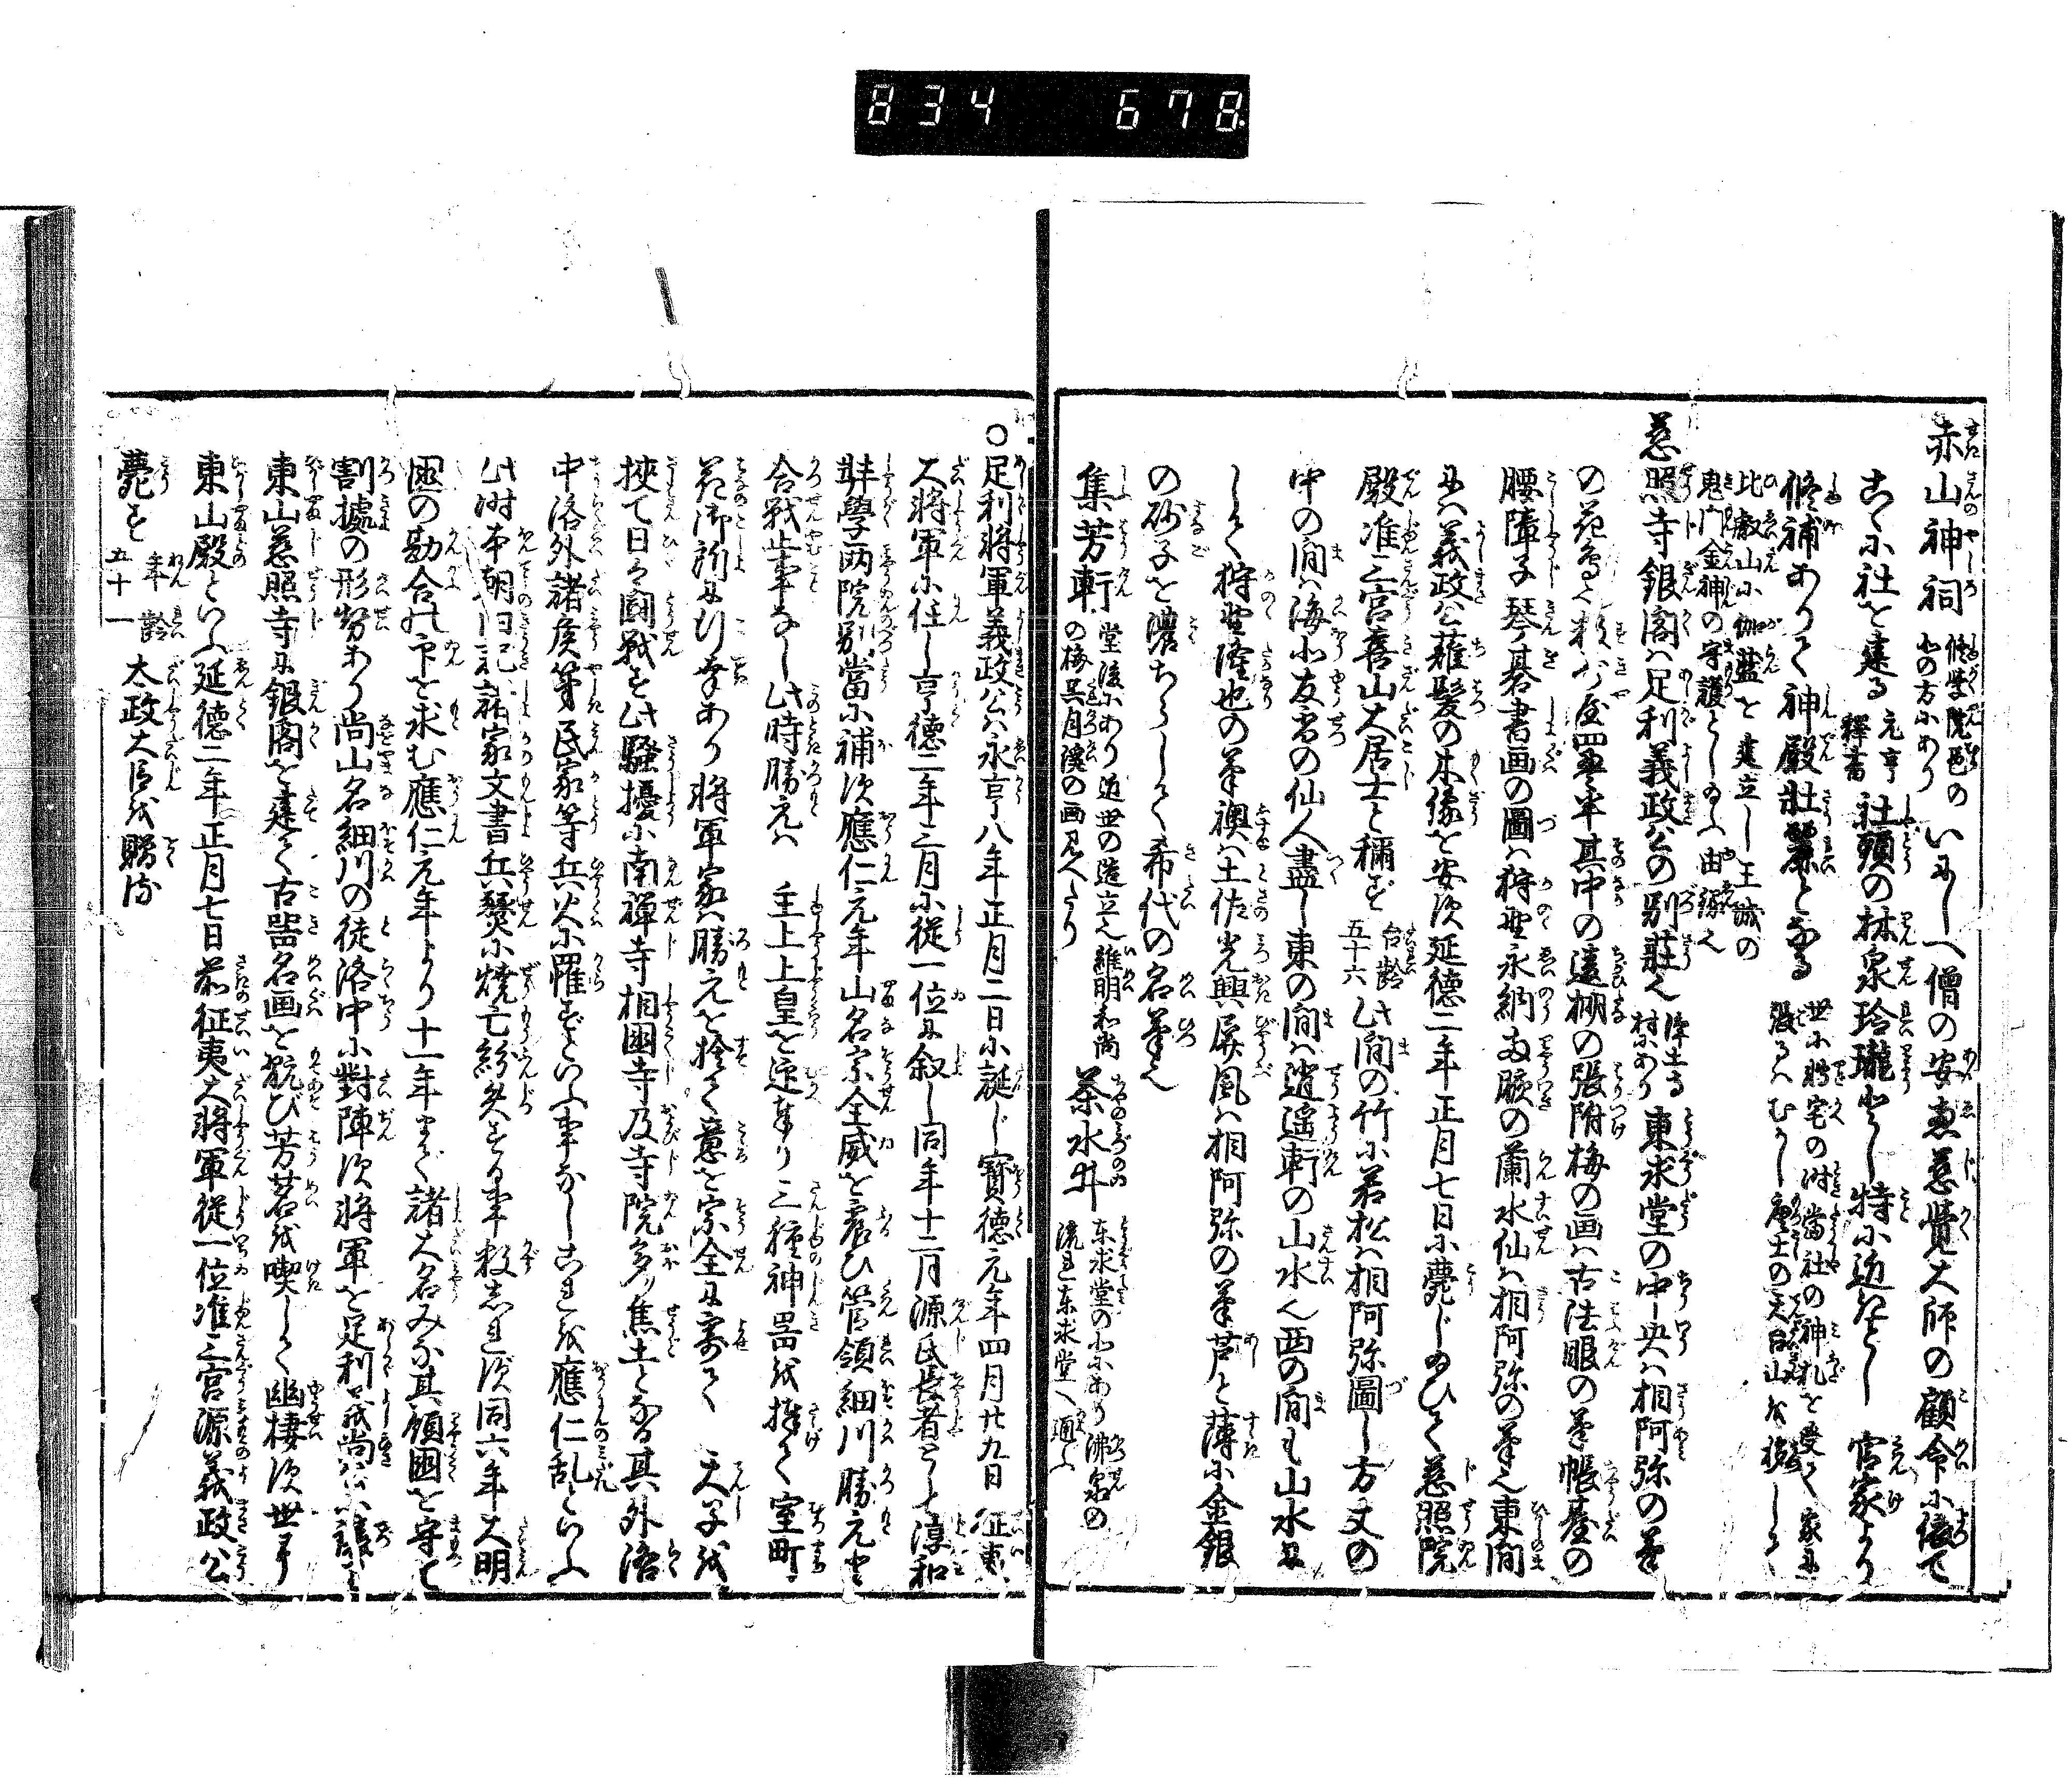 834 678
赤山神祠 修学院邑の北の方にあり いにしへ僧の安恵慈覚大師の顧命に依て
こゝに社を建る 元亨釋書 社頭の林泉玲瓏として特に近年 官家より
修補ありて神殿壮麗となる 世に転宅の時當社の神札を受て家に張るハむかし唐土の天台山を移して
比叡山に伽藍を建立し王城の鬼門金神の守護としたまふ由縁也
慈照寺銀閣ハ足利義政公の別荘也 浄土寺村にあり 東求堂の中央ハ相阿弥の筆
の花鳥也 数寄屋四畳半其中の違棚の張附梅の画ハ古法眼の筆帳臺の
腰障子琴棊書画の圖ハ狩野永納両脇の蘭水仙ハ相阿弥の筆也東間
にハ義政公薙髪の木像を安ず延徳二年正月七日に薨じ給ひて慈照院
殿准三宮喜山大居士と稱す 台齢五十六 此間の竹に若松ハ相阿弥圖し方丈の
中の間ハ海北友雪の仙人盡し東の間ハ逍遥軒の山水也西の間も山水に
して狩野隆也の筆襖ハ土佐光興屏風ハ相阿弥の筆芦と薄に金銀
の砂子を濃ちらして希代の名筆也
集芳軒 堂後にあり近世の造立也維明和尚の梅呉月渓の画見へたり 茶水井 東求堂の北にあり沸泉の流れ東求堂へ通ふ
○足利将軍義政公ハ永享八年正月二日に誕じ寶徳元年四月廿九日 征東
大将軍に任し享徳二年三月に従一位に叙し同年十二月源氏長者として淳和
弉學両院別當に補す應仁元年山名宗全威を震ひ管領細川勝元と
合戦止事なし此時勝元ハ 主上上皇を迎奉り三種神器を捧て室町
花御所に行幸あり将軍家ハ勝元を捨て意を宗全に寄て 天子を
挾て日々闘戦す此騒擾に南禅寺相國寺及寺院多く焦土となる其外洛
中洛外諸侯第民家等兵火に罹ずといふ事なしこれを應仁乱といふ
此時本朝旧記諸家文書兵燹に焼亡紛失する事数しれず同六年大明
國の勘合の印を求む應仁元年より十一年まで諸大名みな其領國を守て
割據の形勢あり尚山名細川の徒洛中に對陣す将軍を足利義尚公に譲り
東山慈照寺に銀閣を建て古器名画を翫び芳茗を喫して幽棲す世に
東山殿といふ延徳二年正月七日前征夷大将軍従一位准三宮源義政公
薨ず 年齢五十一 太政大臣を贈す